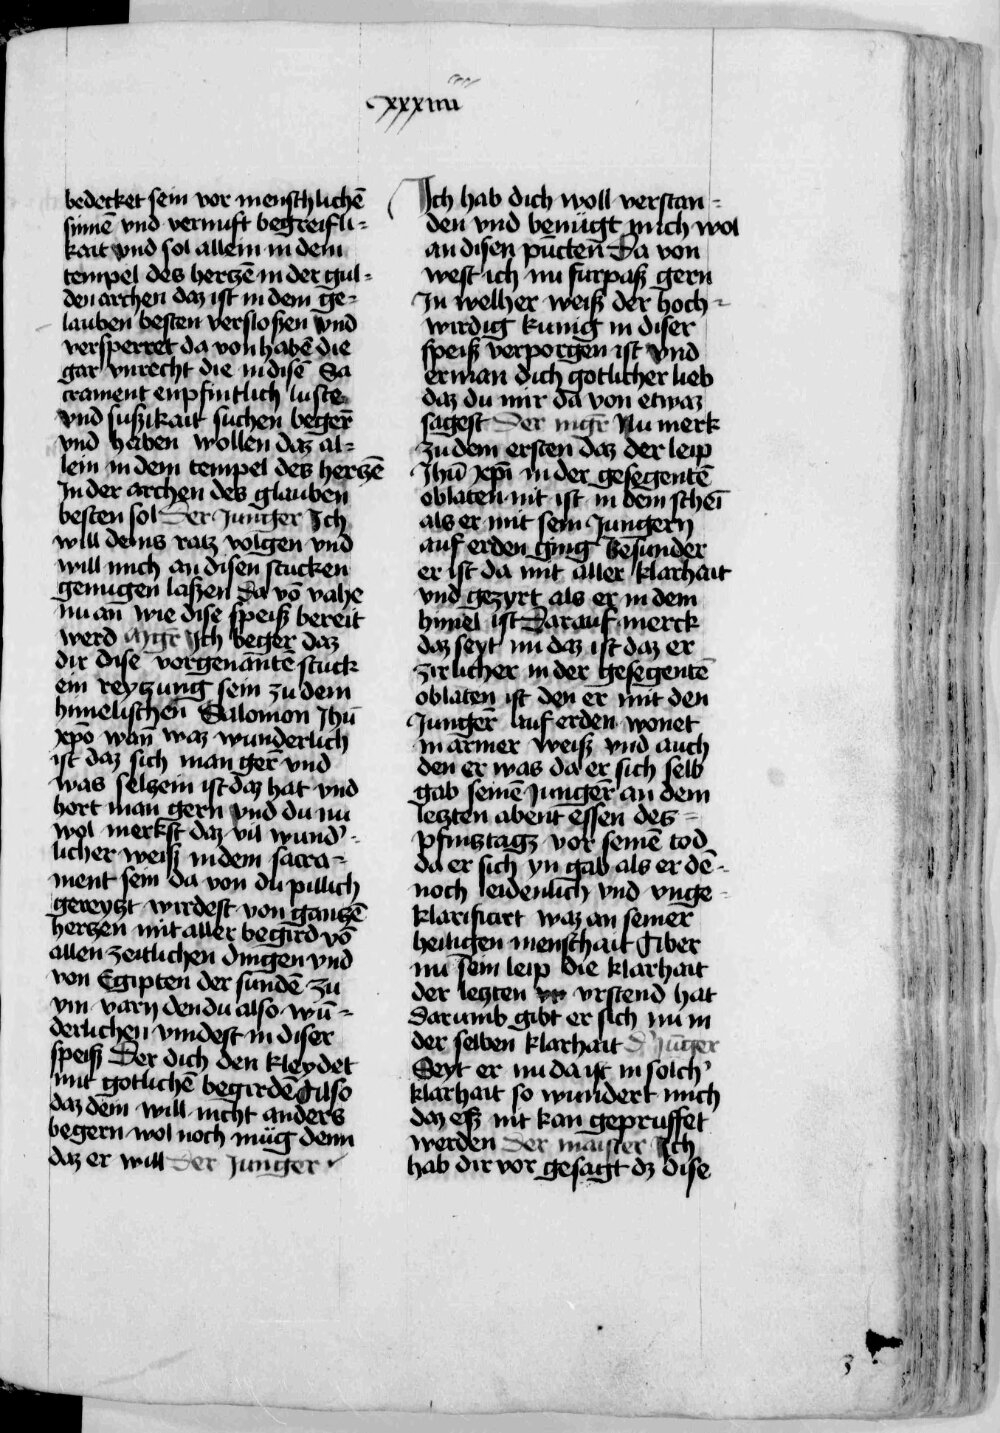 cxxxiiii
bedecket sein vor menschlichē
sinnē vnd vernuft begreifli-
kait vnd sol allein in dem
tempel des hertzē in der gul-
den archen daz ist in dem ge-
lauben besten versloßen vnd
versperret da von habē die
gar vnrecht die in disē Sa
crament enpfintlich luste
vnd sußikait suchen begerr̄
vnd haben wollen daz al-
lein in dem tempel des hertzē
In der archen des glauben
besten sol Der Junger Ich
will deins ratz volgen vnd
will mich an disen stucken
genugen laßen Da vō vahe
nu an̄ wie dise speiß bereit
werd Mgr̄ Ich beger daz
dir dise vorgenantē stuck
ein reytzung sein zu dem
himelischen̄ Salomon Jhū
xp̄o wan̄ waz wunderlich
ist daz sich man ger̄ vnd
was seltzein ist daz hat vnd
hort man gern vnd du nu
wol merkst daz vil wund'-
licher weiß in dem sacra-
ment sein da von du pillich
gereytzt wirdest von gantzē
hertzen mit aller begird vō
allen zeitlichen dingen vnd
von Egipten der sundē zu
ym varn den du also wū-
derlichen vindest in diser
speiß Der dich den kleydet
mit gotlichē begirdē Also
daz dem will nicht anders
begern wol noch müg denn
daz er will Der Junger
Ich hab dich woll verstan-
den vnd benügt mich wol
an disen pūcten̄ Da von
west ich nu furpaß gern
In welher weiß der hoch-
wirdig kunig in diser
speiß verporgen ist vnd
erman dich gotlicher lieb
daz du mir da von etwaz
sagest Der mgr̄ Nu merk
zu dem ersten daz der leip
Jhū xp̄i in der gesegentē
oblaten nit ist in dem scheī
als er mit sein Jungern
auf erden ging besunder
er ist da mit aller klarhait
vnd gezyrt als er in dem
himel ist Darauf merck
daz seyt nu daz ist daz er
zirlicher in der gesegentē
oblaten ist den er mit den
Junger̄ auf erden wonet
in armer weiß vnd auch
den er was da er sich selb
gab seinē Junger̄ an dem
letzten abent essen des
pfinstagz vor seinē tod
da er sich yn gab als er dē-
noch leidenlich vnd vnge-
klarificirt waz an seiner
heiligen menschait Aber
nu sein leip die klarhait
der letzten vr vrstend hat
darumb gibt er sich nu in
der selben klarhait D' Jūger
Seyt er nu da ist in solch'
klarhait so wundert mich
daz eß nit kan gepruffet
werden Der maister Ich
hab dir vor gesagt dz dise
3